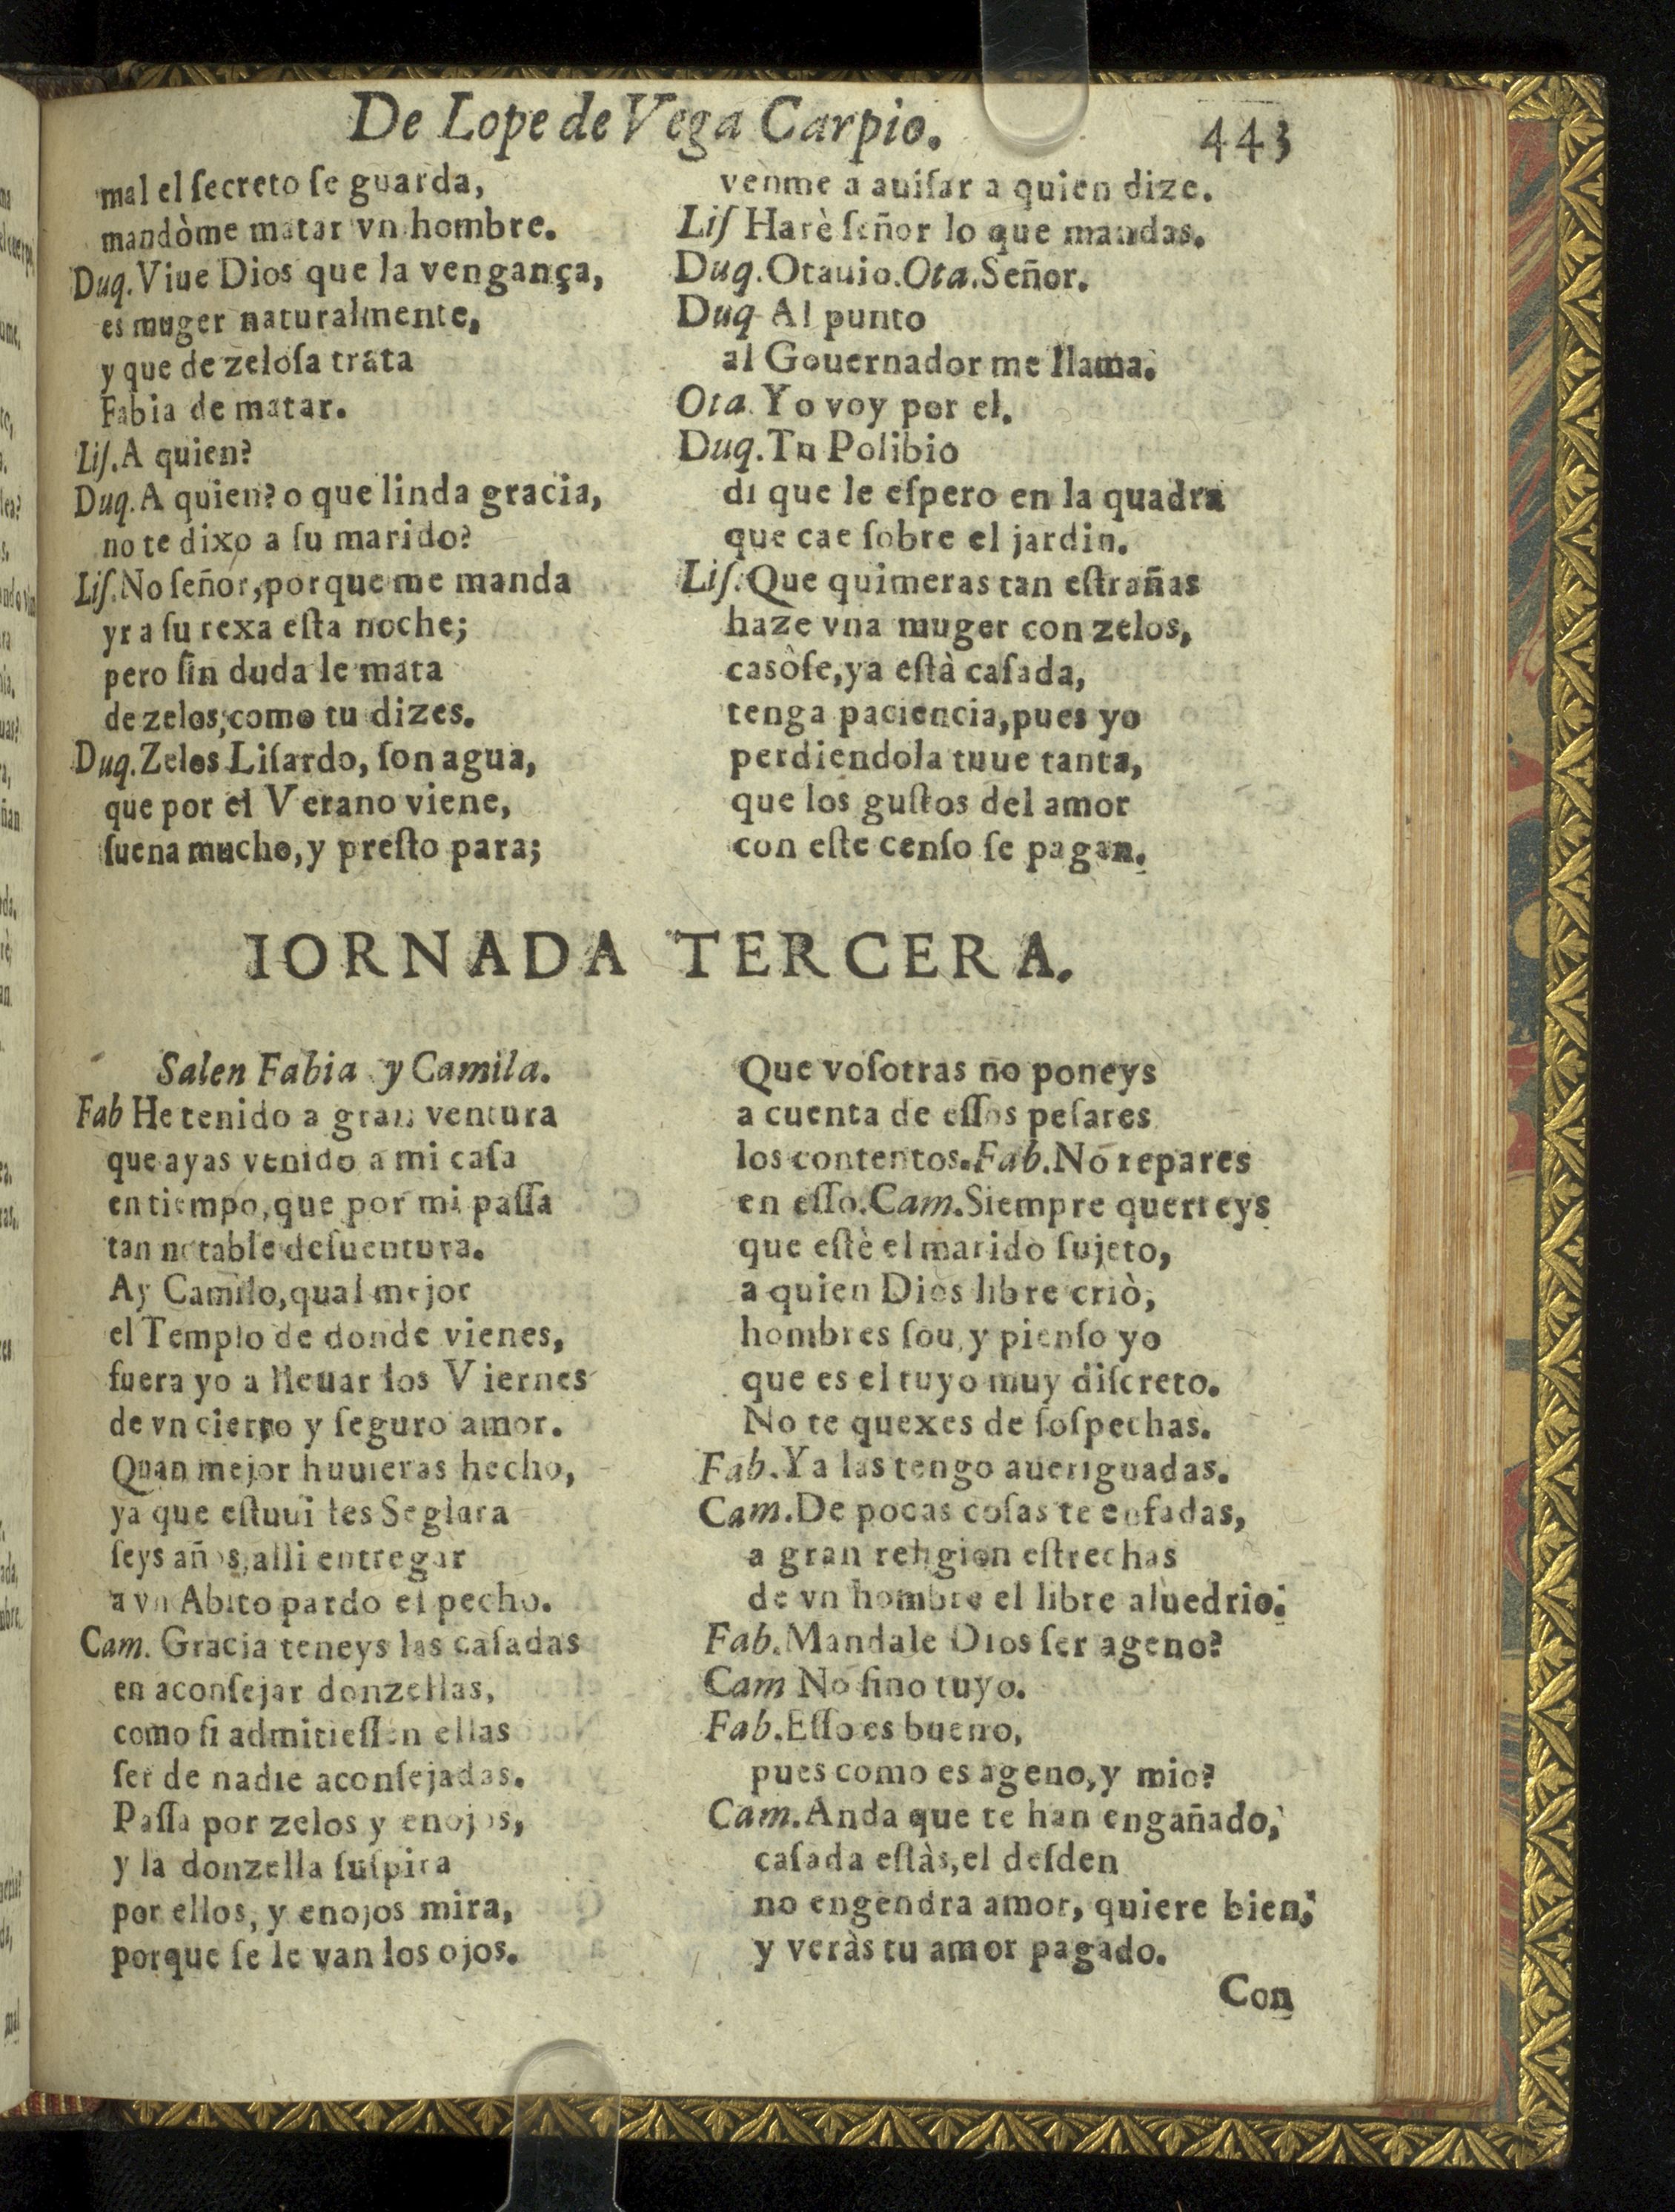 De Lope de Vega Carpio.
443
mal el ſecreto ſe guarda,
mandòme matar vn hombre.
Duq. Viue Dios que la vengança,
es muger naturalmente,
y que de zeloſa trata
Fabia de matar.
Liſ. A quien?
Duq. A quien? o que linda gracia,
no te dixo a ſu marido?
Liſ. No ſeñor, porque me manda
yr a ſu rexa eſta noche;
pero ſin duda le mata
de zelos, como tu dizes.
Duq. Zelos Liſardo, ſon agua,
que por el Verano viene,
ſuena mucho, y preſto para;
venme a auiſar a quien dize.
Liſ Harè ſeñor lo que mandas.
Duq. Otauio. Ota. Señor.
Duq Al punto
al Gouernador me llama.
Ota. Yo voy por el.
Duq. Tu Polibio
di que le eſpero en la quadra
que cae ſobre el jardin.
Liſ. Que quimeras tan eſtrañas
haze vna muger con zelos,
casòſe, ya eſtà caſada,
tenga paciencia, pues yo
perdiendola tuue tanta,
que los guſtos del amor
con eſte cenſo ſe pagan.
IORNADA TERCERA.
Salen Fabia y Camila.
Fab He tenido a gran ventura
que ayas venido a mi caſa
en tiempo, que por mi paſſa
tan notable deſuentura.
Ay Camilo, qual mejor
el Templo de donde vienes,
fuera yo a lleuar los Viernes
de vn cierto y ſeguro amor.
Quan mejor huuieras hecho,
ya que eſtuui tes Seglara
ſeys años, alli entregar
a vn Abito pardo el pecho.
Cam. Gracia teneys las caſadas
en aconſejar donzellas,
como ſi admitieſſen ellas
ſer de nadie aconſejadas.
Paſſa por zelos y enojos,
y la donzella ſuſpira
por ellos, y enojos mira,
porque ſe le van los ojos.
Que voſotras no poneys
a cuenta de eſſos peſares
los contentos. Fab. No repares
en eſſo. Cam. Siempre querreys
que eſtè el marido ſujeto,
a quien Dios libre criò,
hombres ſou, y pienſo yo
que es el tuyo muy diſcreto.
No te quexes de ſoſpechas.
Fab. Ya las tengo aueriguadas.
Cam. De pocas coſas te enfadas,
a gran religion eſtrechas
de vn hombre el libre aluedrio:
Fab. Mandale Dios ſer ageno?
Cam No ſino tuyo.
Fab. Eſſo es bueno,
pues como es ageno, y mio?
Cam. Anda que te han engañado,
caſada eſtàs, el deſden
no engendra amor, quiere bien,
y veràs tu amor pagado.
Con